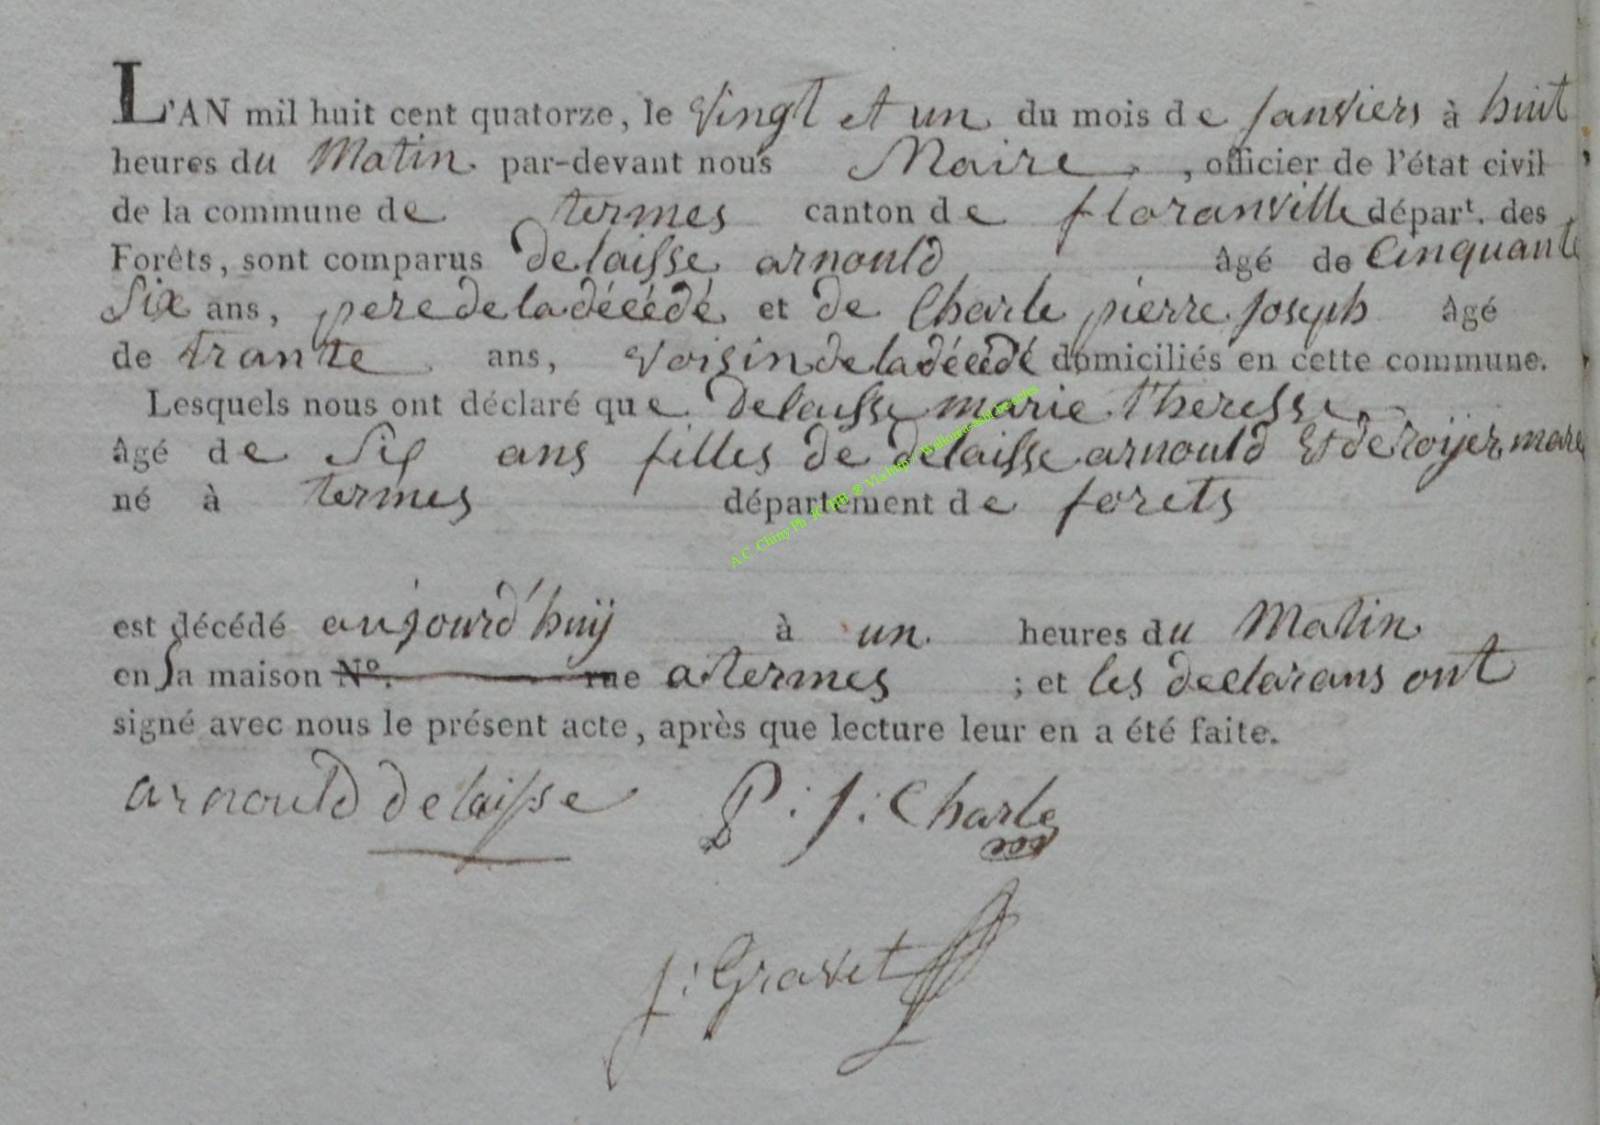 L'AN mil huit cent quatorze, le vingt et un du mois de janviers à huit
heures du Matin par-devant nous Maire, officier de l'état civil
de la commune de termes canton de floranville départ. des
Forêts, sont comparus delaisse arnould âgé de Cinquante
Six ans, pere de la décédé et de Charle pierre joseph âgé
de trante ans, voisin de la décédé domiciliés en cette commune.
Lesquels nous ont déclaré que delaisse marie theresse
âgé de Six ans filles de delaisse arnould Et de roijer marie
né à termes département de forets
est décédé aujourd'huij à un heures du Matin
en Sa maison N°. rue a termes ; et les declarans ont
signé avec nous le présent acte, après que lecture leur en a été faite.
arnould delaisse P : j : Charle
j : Gravet